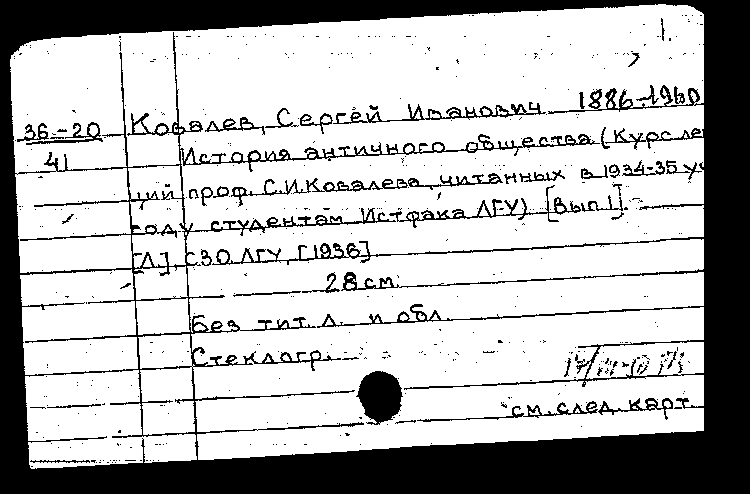 1.
36-20 Ковалев, Сергей Иванович 1886-1960
41 История античного общества (Курс лек
ций проф. С.И.Ковалева, читанных в 1934-35 уч
году студентам Истфака ЛГУ) [Вып 1].
[Л], СЗО ЛГУ, [1936]
28 см.
Без тит. л. и обл.
Стеклогр.
см. след. карт.